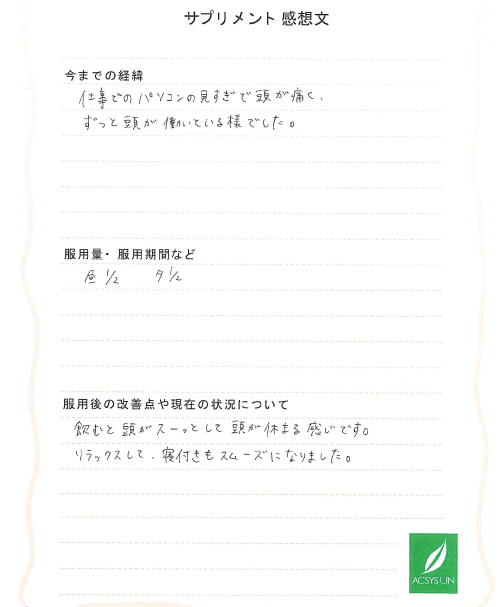 サプリメント 感想文
今までの経緯
仕事でのパソコンの見すぎで頭が痛く、
ずっと頭が働いている様でした。
服用量・服用期間など
昼 1/2　夕 1/2
服用後の改善点や現在の状況について
飲むと頭がスーッとして頭が休まる感じです。
リラックスして、寝付きもスムーズになりました。
ACSYSUN